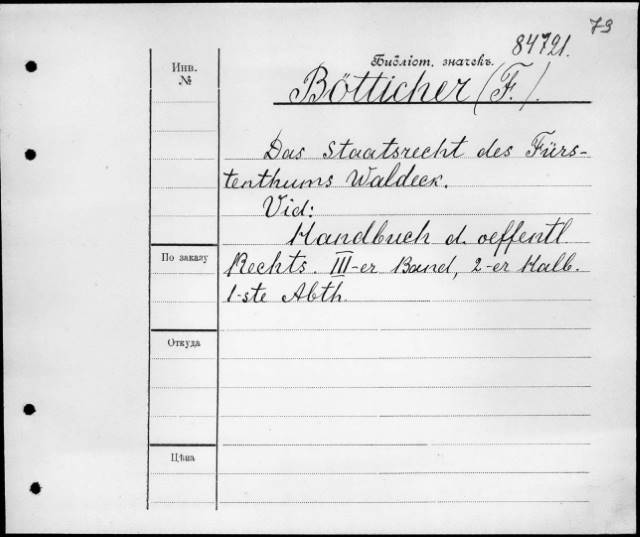 73
84721.
Инв. №
Библіот. значекъ.
Bötticher (F.).
Das Staatsrecht des Fürs-
tenthums Waldeck.
Vid:
Handbuch d. oeffentl.
По заказу
Rechts. III-er Band, 2-er Halb.
1-ste Abth.
Откуда
Цѣна